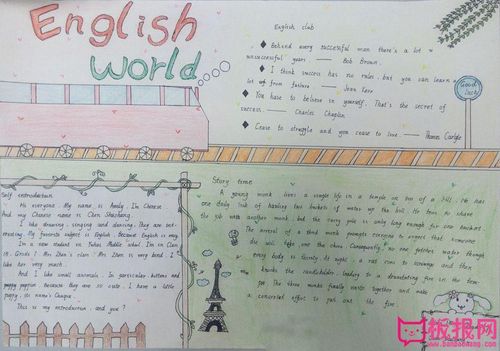 English
World
English club
◆ Behind every successful man there's a lot of
unsuccessful years —— Bob Brown.
◆ I think success has no rules, but you can learn a
lot of from failure. —— Jean Kerr
◆ You have to believe in yourself. That's the secret of
success. —— Charles Chaplin
◆ Cease to struggle and you cease to live. —— Thomas Carlyle
Good
Luck
Self introduction
Hi everyone. My name is Amily. I'm Chinese
And my Chinese name is Chen
I like drawing, singing and dancing. They are int-
eresting. My favorite subject is English. Because English is easy.
I'm a new student in Middle school. I'm in Class
Grade 7. Mrs Zhan's class. Mrs Zhan is very kind. I
like her very much.
And I like small animals. In particular kittens and
puppy because they are so cute. I have a little
puppy, its name's
This is my introduction. and you?
Story time
A young monk lives a simple life in a temple on top of a hill. He has
one daily task of hauling two buckets of water up the hill. He tries to share
the job with another monk, but the carry pole is only long enough for one bucket.
The arrival of a third monk prompts everyone to expect that someone
else will take on the chore. Consequently, no one fetches water though
every body is thirsty. At night, a rat comes to scrounge and then
knocks the candleholder, leading to a devastating fire in the tem-
ple. The three monks finally unite together and make
a concerted effort to put out the fire.
板报网
www.banbaowang.com